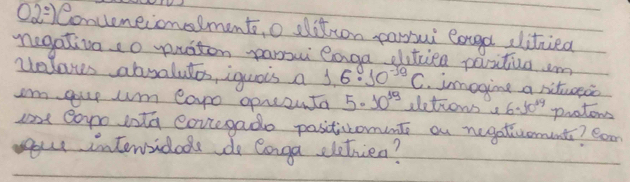 02=) Convencionalmente, o elétron possui Carga elétrica
negativa e o próton possui Carga elétrica positiva em
Valores absolutos, iguais a 1,6 · 10⁻¹⁹ C. imagine a situação
em que um Corpo apresenta 5 · 10¹⁹ eletrons e 6 · 10¹⁹ protons
esse Corpo está Carregado positivamente ou negativamente? Com
que intensidade de Carga eletrica?